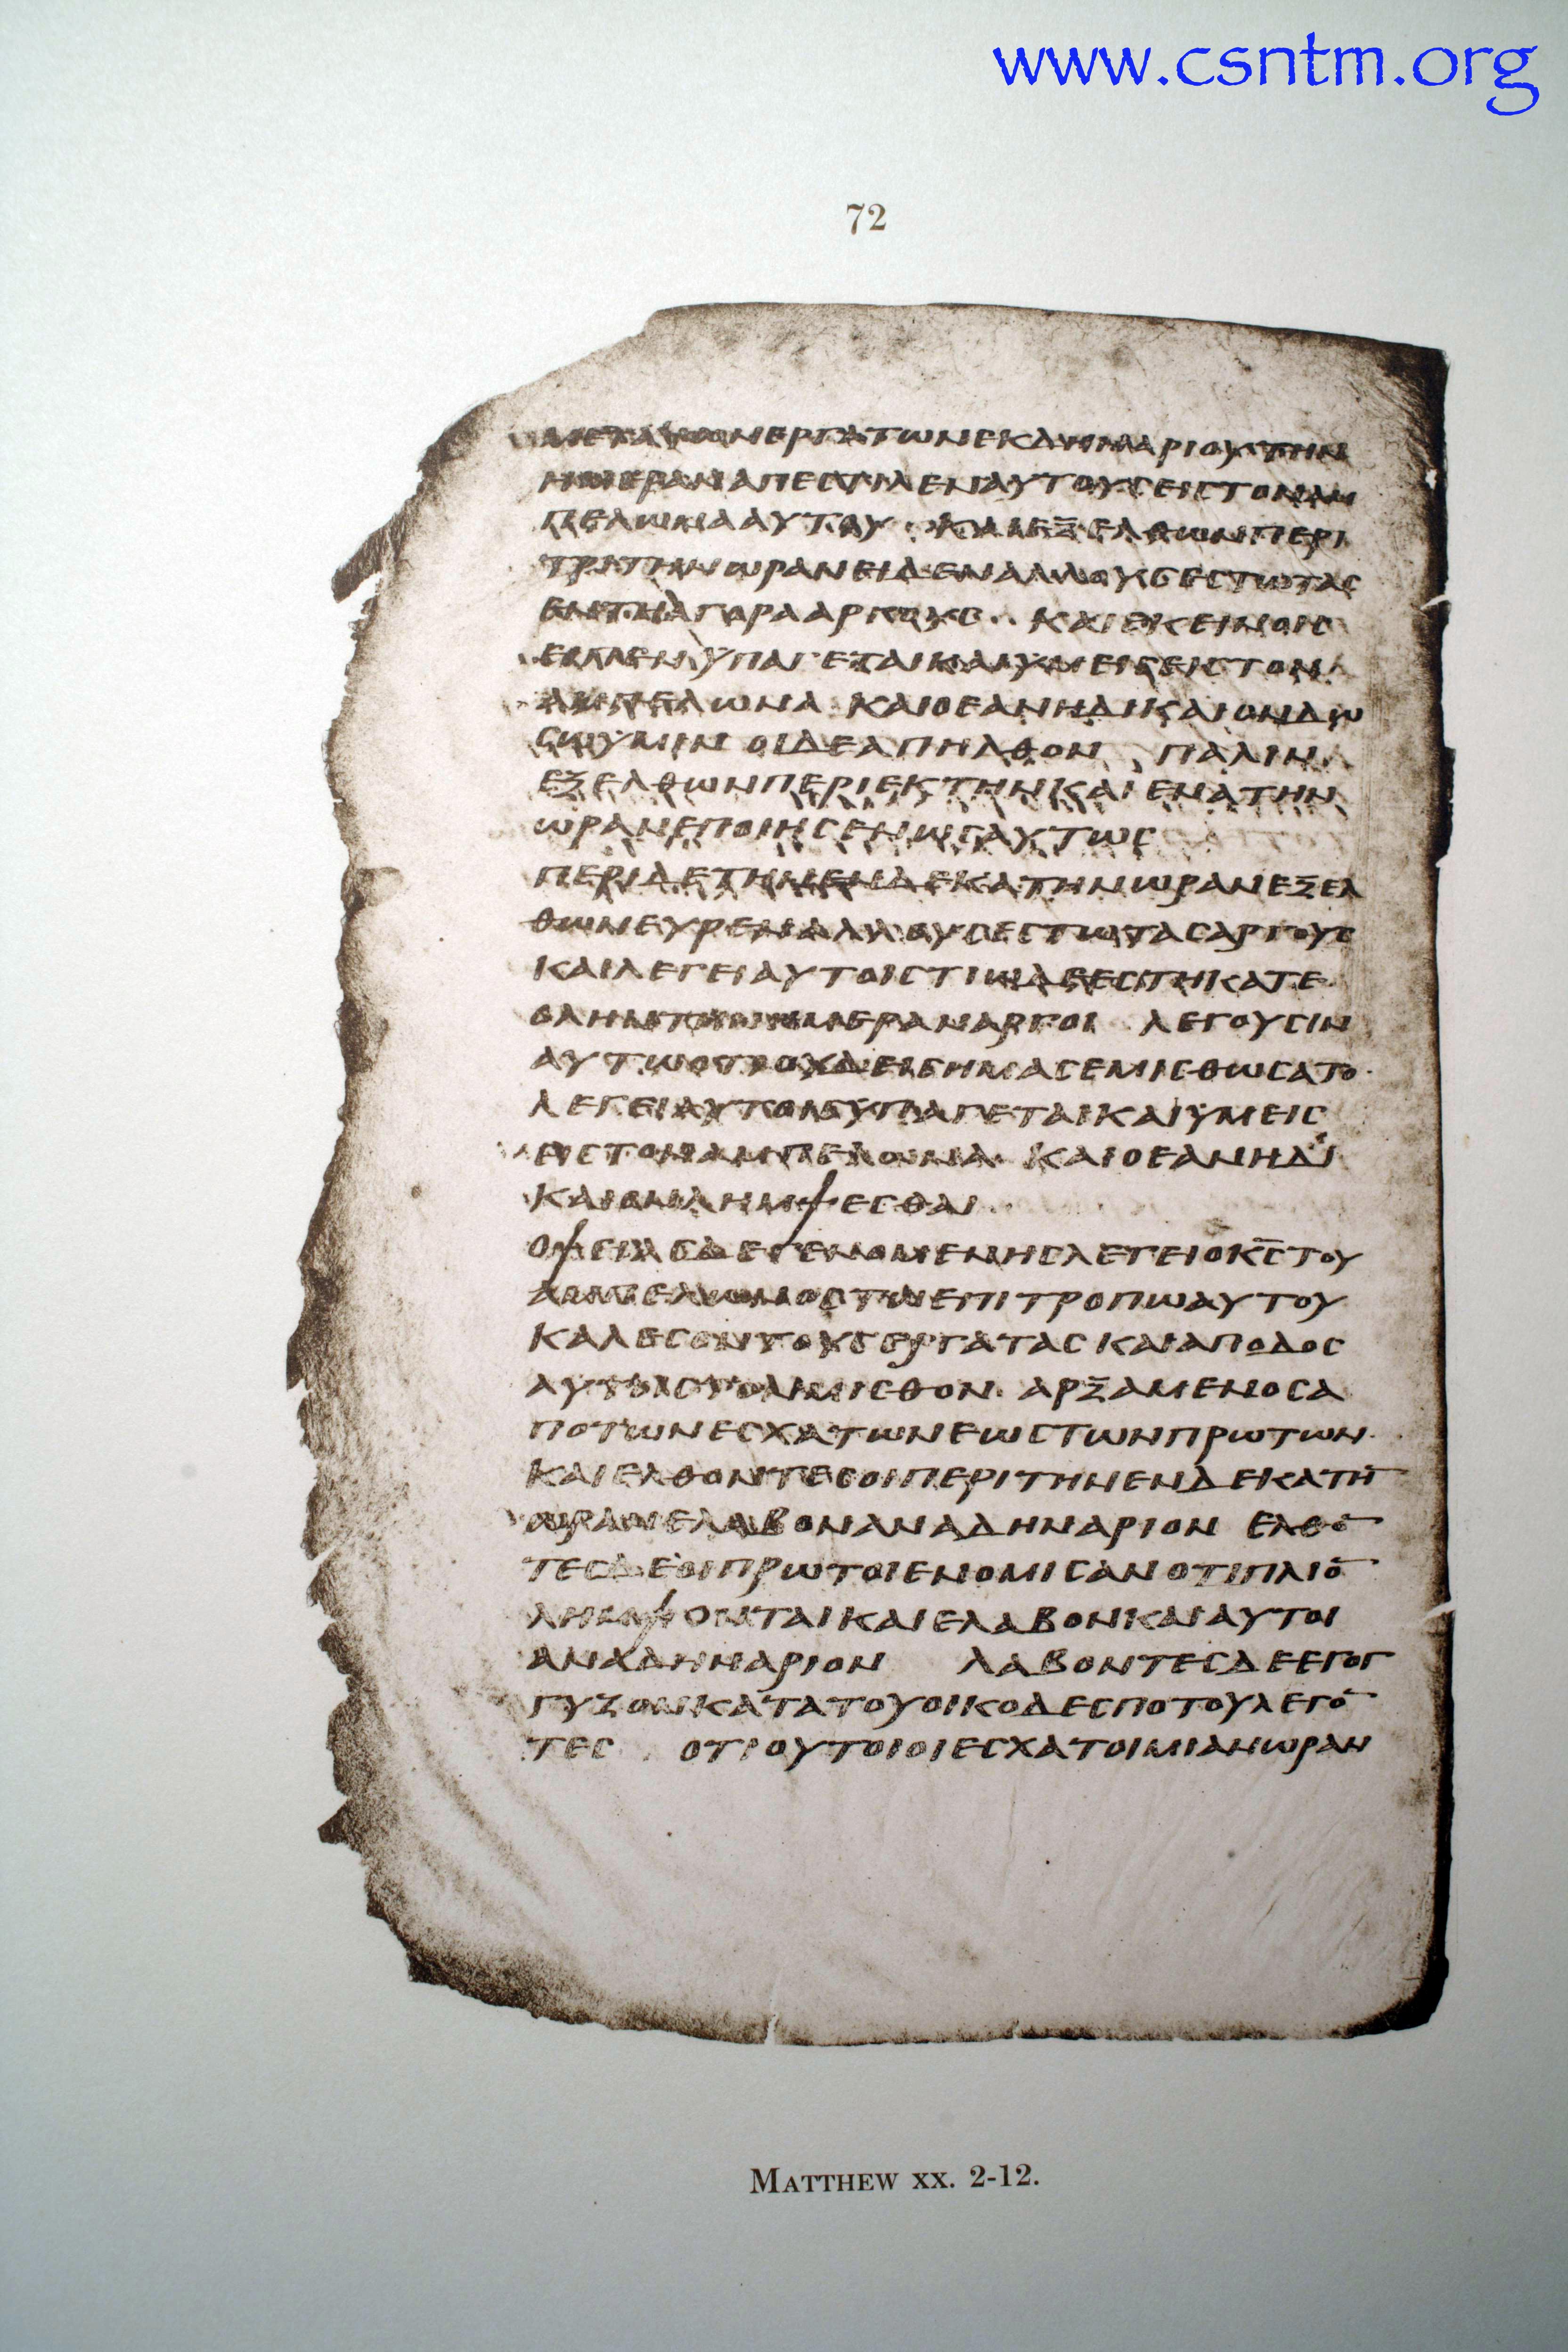 www.csntm.org
72
ΜΕΤΑ ΤΩΝ ΕΡΓΑΤΩΝ ΕΚ ΔΗΝΑΡΙΟΥ ΤΗΝ
ΗΜΕΡΑΝ ΑΠΕСΤΙΛΕΝ ΑΥΤΟΥС ΕΙС ΤΟΝ ΑΜ
ΠΕΛΩΝΑ ΑΥΤΟΥ · ΚΑΙ ΕΞΕΛΘΩΝ ΠΕΡΙ
ΤΡΙΤΗΝ ΩΡΑΝ ΕΙΔΕΝ ΑΛΛΟΥС ΕСΤΩΤΑС
ΕΝ ΤΗ ΑΓΟΡΑ ΑΡΓΟΥС · ΚΑΙ ΕΚΕΙΝΟΙС
ΕΙΠΕΝ ΫΠΑΓΕΤΑΙ ΚΑΙ ΫΜΕΙС ΕΙС ΤΟΝ
ΑΜΠΕΛΩΝΑ ΚΑΙ Ο ΕΑΝ Η ΔΙΚΑΙΟΝ ΔΩ
СΩ ΫΜΙΝ ΟΙ ΔΕ ΑΠΗΛΘΟΝ ΠΑΛΙΝ
ΕΞΕΛΘΩΝ ΠΕΡΙ ΕΚΤΗΝ ΚΑΙ ΕΝΑΤΗΝ
ΩΡΑΝ ΕΠΟΙΗСΕΝ ΩСΑΥΤΩС
ΠΕΡΙ ΔΕ ΤΗΝ ΕΝΔΕΚΑΤΗΝ ΩΡΑΝ ΕΞΕΛ
ΘΩΝ ΕΥΡΕΝ ΑΛΛΟΥС ΕСΤΩΤΑС ΑΡΓΟΥС
ΚΑΙ ΛΕΓΕΙ ΑΥΤΟΙС ΤΙ ΩΔΕ ΕСΤΗΚΑΤΕ
ΟΛΗΝ ΤΗΝ ΗΜΕΡΑΝ ΑΡΓΟΙ ΛΕΓΟΥСΙΝ
ΑΥΤΩ ΟΤΙ ΟΥΔΕΙС ΗΜΑС ΕΜΙСΘΩСΑΤΟ ·
ΛΕΓΕΙ ΑΥΤΟΙС ΫΠΑΓΕΤΑΙ ΚΑΙ ΫΜΕΙС
ΕΙС ΤΟΝ ΑΜΠΕΛΩΝΑ ΚΑΙ Ο ΕΑΝ Η ΔΙ
ΚΑΙΟΝ ΛΗΜΨΕСΘΑΙ
ΟΨΕΙΑС ΔΕ ΓΕΝΟΜΕΝΗС ΛΕΓΕΙ Ο Κ̅С̅ ΤΟΥ
ΑΜΠΕΛΩΝΟС ΤΩ ΕΠΙΤΡΟΠΩ ΑΥΤΟΥ
ΚΑΛΕСΟΝ ΤΟΥС ΕΡΓΑΤΑС ΚΑΙ ΑΠΟΔΟС
ΑΥΤΟΙС ΤΟΝ ΜΙСΘΟΝ ΑΡΞΑΜΕΝΟС Α
ΠΟ ΤΩΝ ΕСΧΑΤΩΝ ΕΩС ΤΩΝ ΠΡΩΤΩΝ ·
ΚΑΙ ΕΛΘΟΝΤΕС ΟΙ ΠΕΡΙ ΤΗΝ ΕΝΔΕΚΑΤΗ̅
ΩΡΑΝ ΕΛΑΒΟΝ ΑΝΑ ΔΗΝΑΡΙΟΝ ΕΛΘΟ̅
ΤΕС ΔΕ ΟΙ ΠΡΩΤΟΙ ΕΝΟΜΙСΑΝ ΟΤΙ ΠΛΙΟ̅
ΛΗΜΨΟΝΤΑΙ ΚΑΙ ΕΛΑΒΟΝ ΚΑΙ ΑΥΤΟΙ
ΑΝΑ ΔΗΝΑΡΙΟΝ ΛΑΒΟΝΤΕС ΔΕ ΕΓΟΓ
ΓΥΖΟΝ ΚΑΤΑ ΤΟΥ ΟΙΚΟΔΕСΠΟΤΟΥ ΛΕΓΟ̅
ΤΕС ΟΤΙ ΟΥΤΟΙ ΟΙ ΕСΧΑΤΟΙ ΜΙΑΝ ΩΡΑΝ
MATTHEW XX. 2-12.